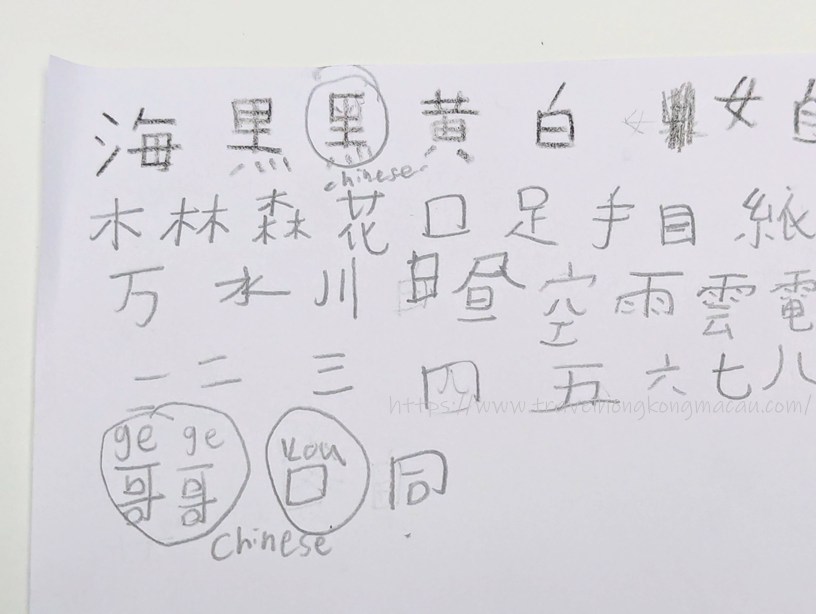 海 黒 黑 黄 白 女
chinese
木 林 森 花 口 足 手 目
万 水 川 昼 空 雨 雲 電
二 二 三 四 五 六 七 八
https://www.travelhongkongmacau.com/
ge ge kou
哥 哥 口 同
Chinese